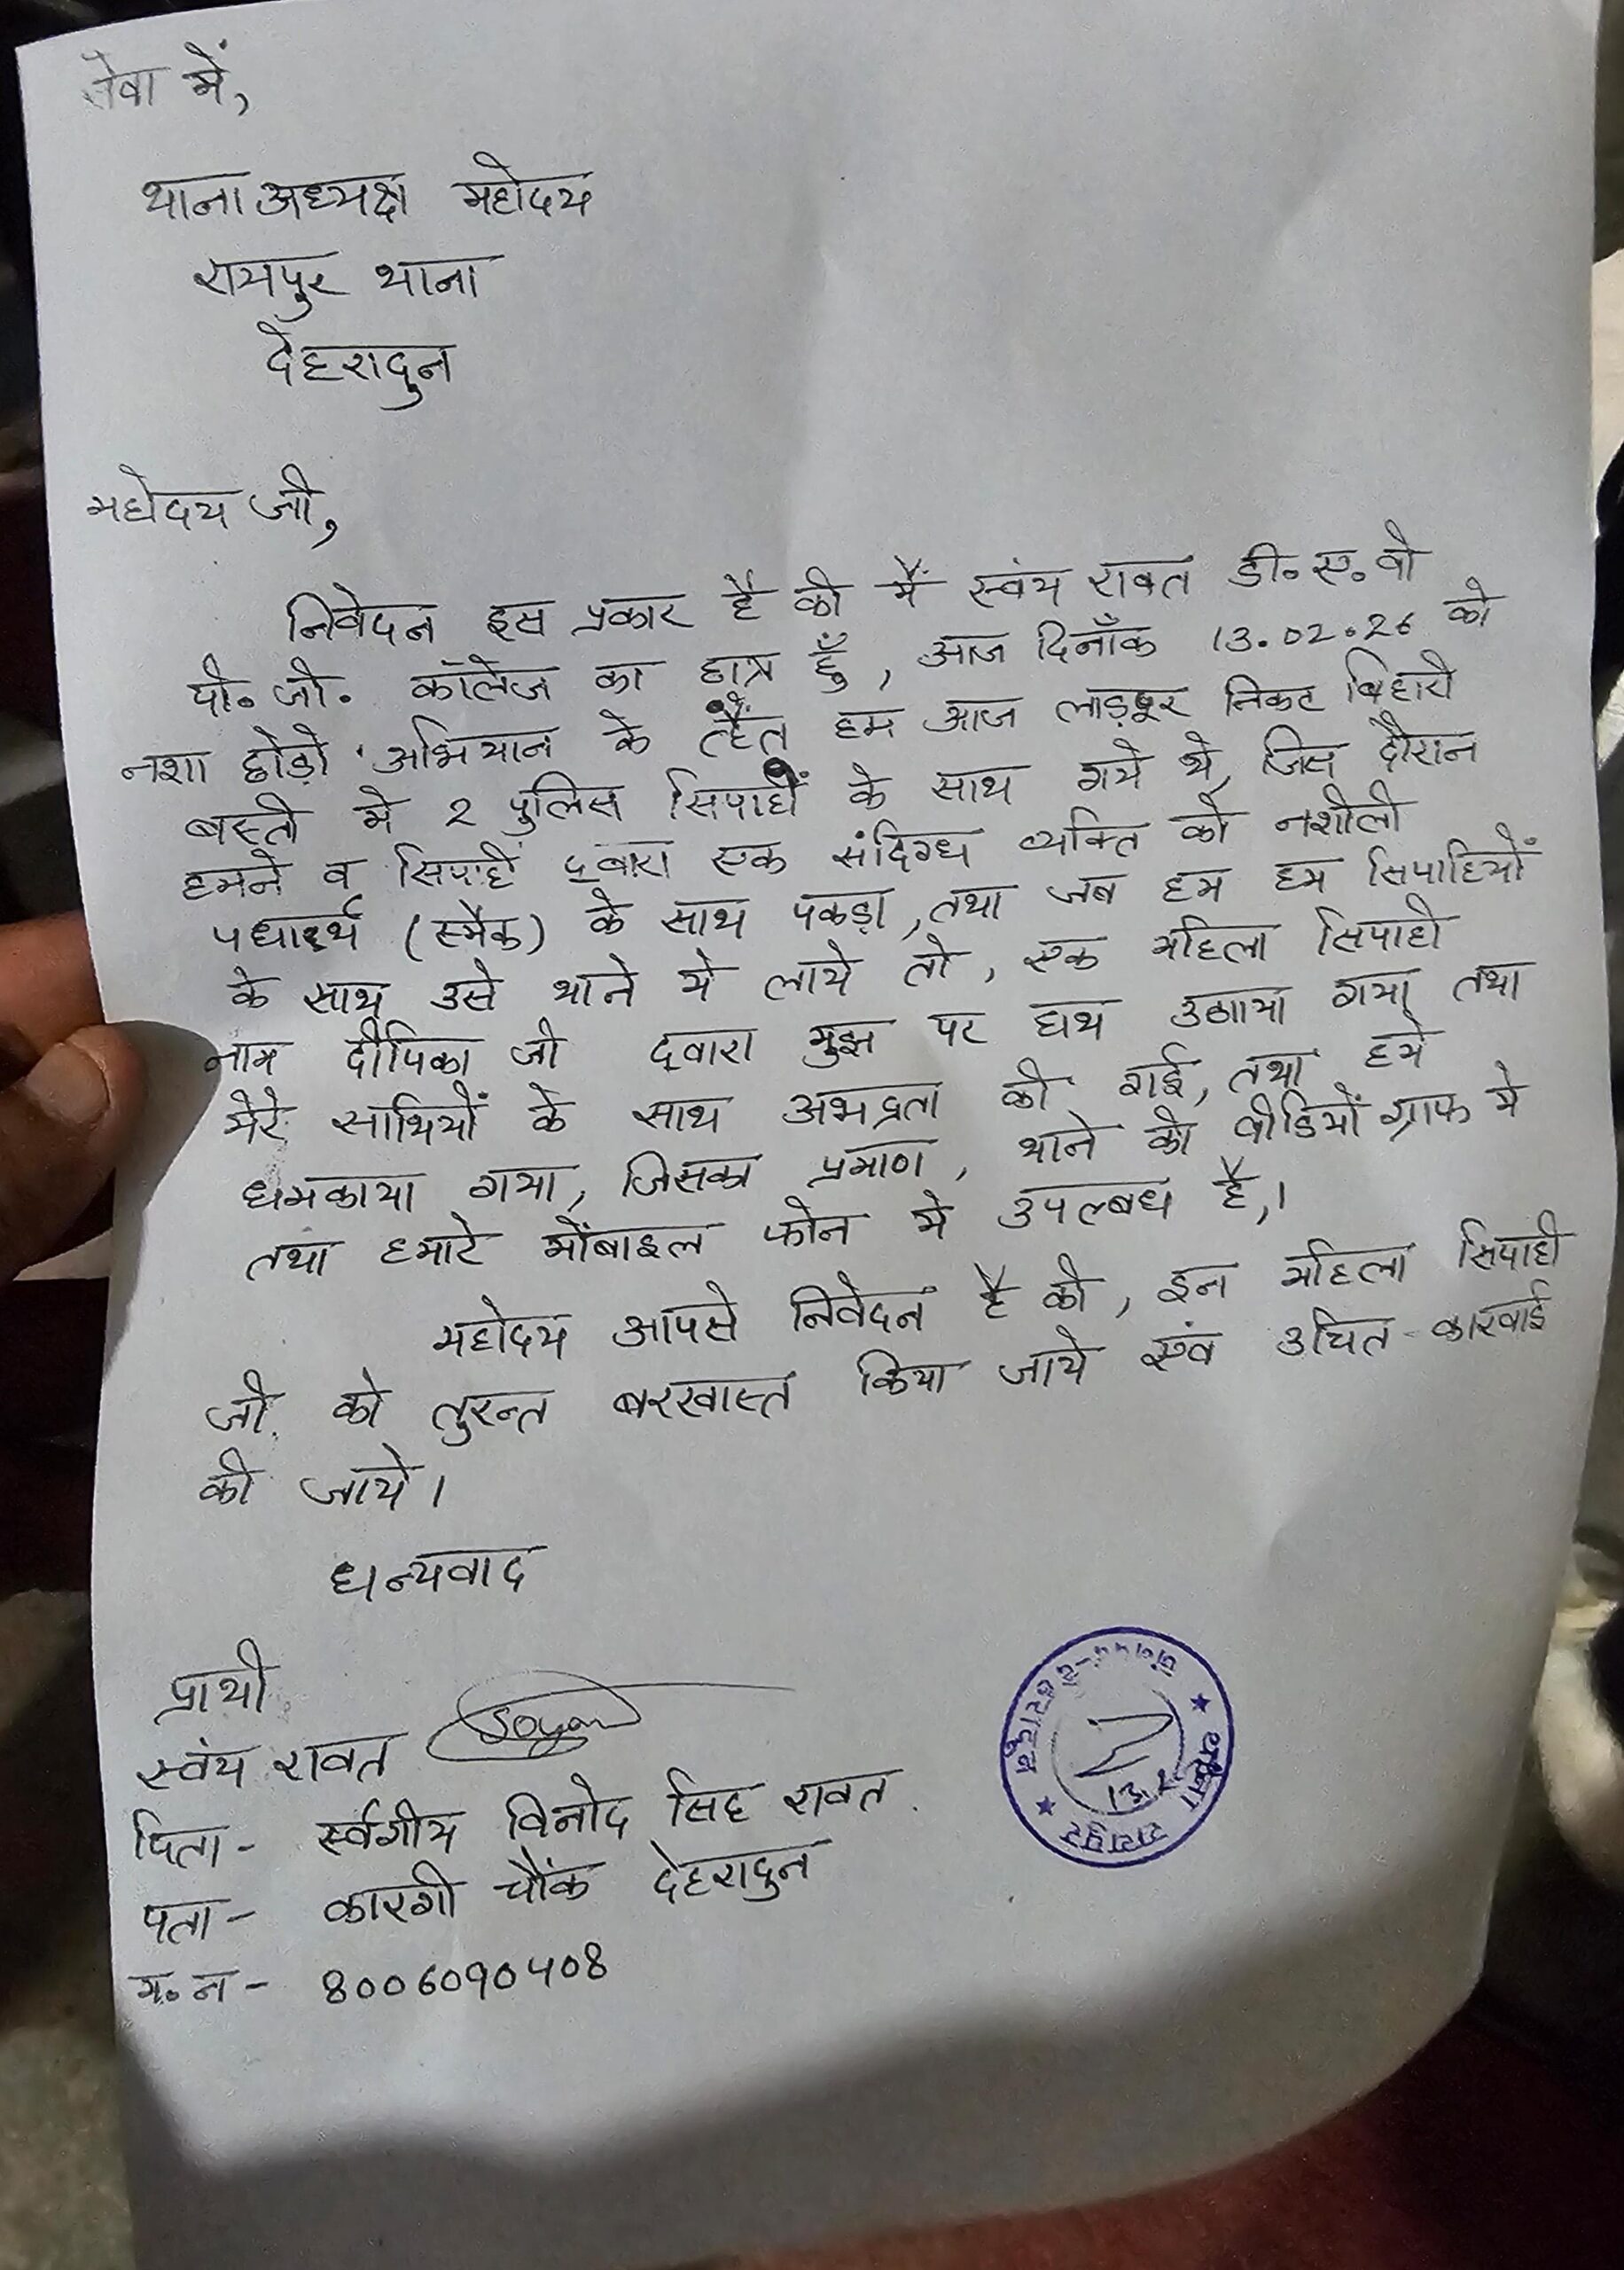 सेवा में,
थाना अध्यक्ष महोदय
रायपुर थाना
देहरादुन
महोदय जी,
निवेदन इस प्रकार है की मैं स्वंय रावत डी॰ए॰वी
पी॰जी॰ कॉलेज का छात्र हूँ, आज दिनाँक 13.02.26 को
नशा छोड़ो अभियान के तहैत हम आज लाड़पूर निकट बिहारी
बस्ती मे 2 पुलिस सिपाही के साथ गये थे, जिस दौरान
हमने व सिपाही द्वारा एक संदिग्ध व्यक्ति को नशीली
पधार्थ (स्मैक) के साथ पकड़ा, तथा जब हम हम सिपाहियों
के साथ उसे थाने मे लाये तो, एक महिला सिपाही
नाम दीपिका जी द्वारा मुझ पर हाथ उठाया गया तथा
मेरे साथियों के साथ अभद्रता की गई, तथा हमे
धमकाया गया, जिसका प्रमाण, थाने की वीडियों ग्राफ मे
तथा हमारे मोंबाइल फोन मे उपल्बध है,।
महोदय आपसे निवेदन है की, इन महिला सिपाही
जी को तुरन्त बरखास्त किया जाये एंव उचित कारवाई
की जाये।
धन्यवाद
प्रार्थी
स्वंय रावत Soyam
पिता - र्स्वगीय विनोद सिंह रावत
पता - कारगी चौंक देहरादुन
म॰न - 8006090408
थाना रायपुर
जनपद-देहरादून